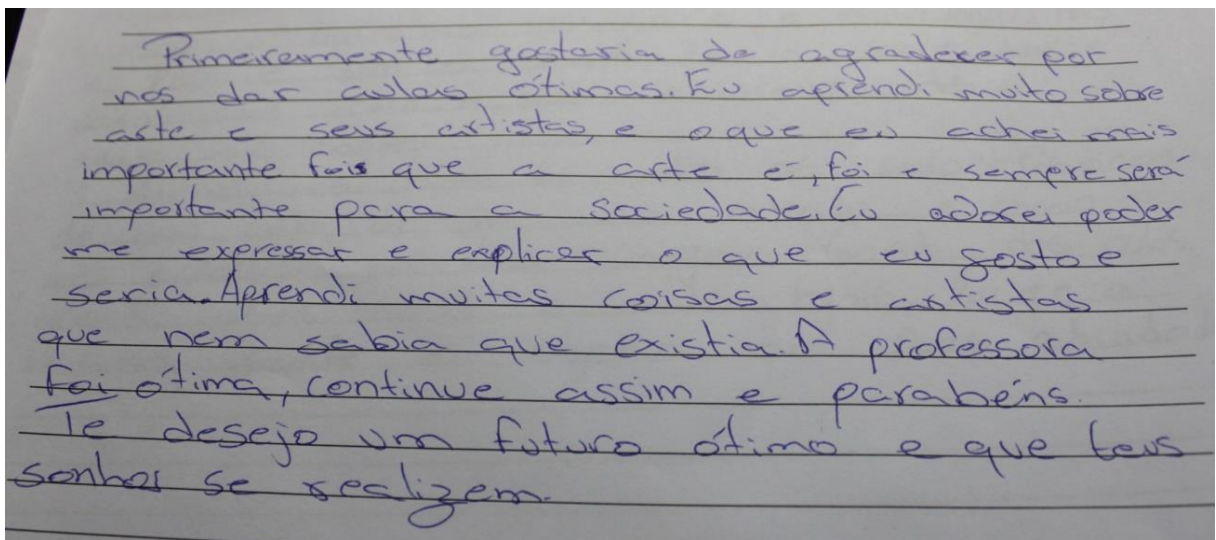 Primeiramente gostaria de agradecer por
nos dar aulas ótimas. Eu aprendi muito sobre
arte e seus artistas, e o que eu achei mais
importante foi que a arte é, foi e sempre será
importante para a sociedade. Eu adorei poder
me expressar e explicar o que eu gosto e
seria. Aprendi muitas coisas e artistas
que nem sabia que existia. A professora
foi ótima, continue assim e parabéns.
Te desejo um futuro ótimo e que teus
sonhos se realizem.